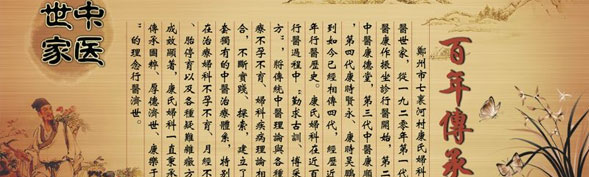 百年傳承
鄭州市七裏河村康氏婦科
醫世家，從一九二零年第一代
醫康作振坐診行醫開始，第二
中醫康德堂，第三代中醫康順
，第四代康時賢永、康時昊鵬
到如今已經相傳四代，經歷近
年行醫歷史。康氏婦科在近百
行醫過程中“勤求古訓，博采
方”，將傳統中醫理論與各種
療不孕不育、婦科疾病理論相
合，不斷實踐、探索，建立了
套獨有的中醫治療體系，特別
在治療婦科不孕不育、月經不
、胎停育以及各種疑難雜癥方
成效顯著，康氏婦科一直秉承
傳承國粹、厚德濟世、康樂于
”的理念行醫濟世。
中医
世家